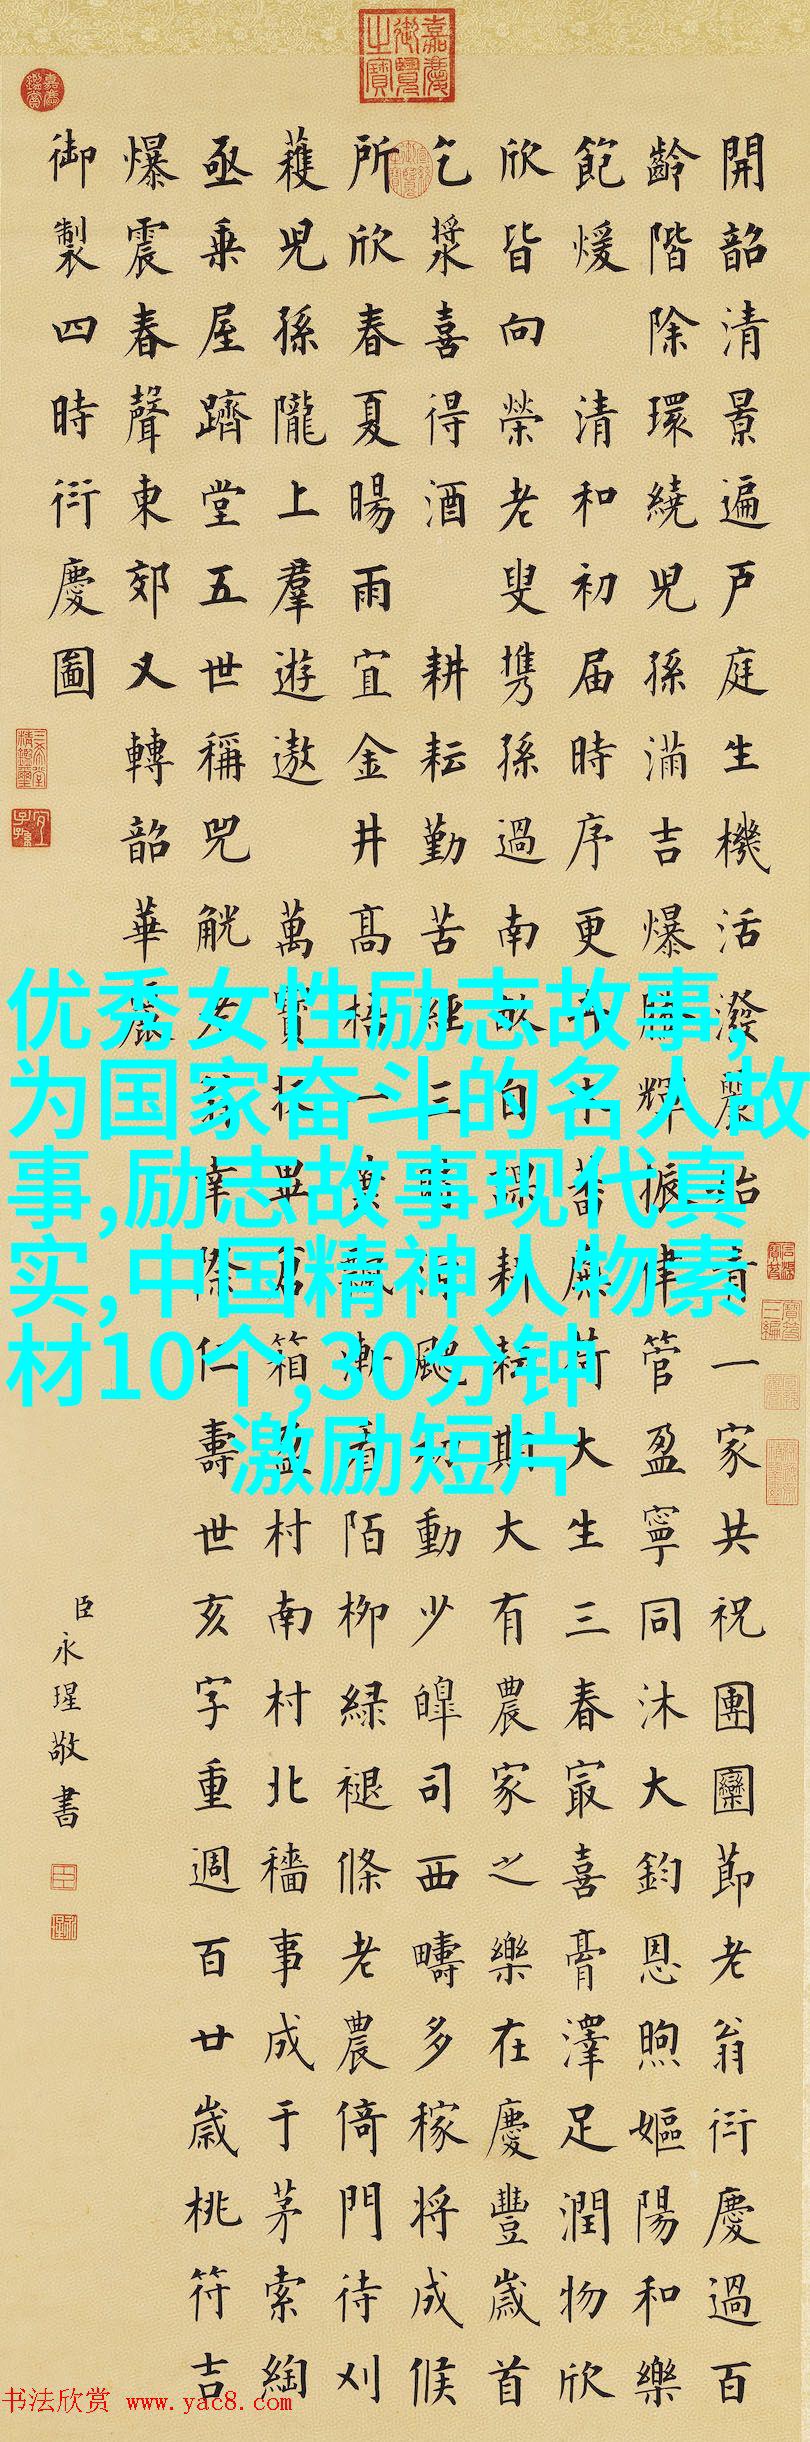 嘉慶御覽之寶
嘉慶鑑賞
開韶清景遍戶庭生機活潑青一家共祝團圞節老翁衍慶過百
齡階除環繞兒孫滿吉爆騰輝振律管盈寧同沐大鈞恩煦嫗陽和樂
飽煖清和初屆時序更木蕃廡荷大生三春㝡喜膏澤足潤物欣
欣皆向榮老叟携孫過南畝白課耕耘期大有農家之樂在慶豐歲首
乞漿喜得酒耕耘勤苦經三颸初動少皥司西疇多稼將成候
所欣春夏暘雨宜金井高梧一葉飄漸看陌柳綠褪條老農倚門待刈
穫兒孫隴上羣遊遨萬寶箱盈村南村北穡事成于茅索綯
亟乘屋躋堂五世稱兕觥翁幸際仁壽世亥字重週百廿歲桃符吉
爆震春聲東郊又轉韶華麗
御製四時衍慶圖
三希堂精鑑璽
宜子孫
臣永瑆敬書
优秀女性励志故事,
为国家奋斗的名人故
事,励志故事现代真
实,中国精神人物素
材10个,30分钟
激励短片
书法欣赏 www.yac8.com